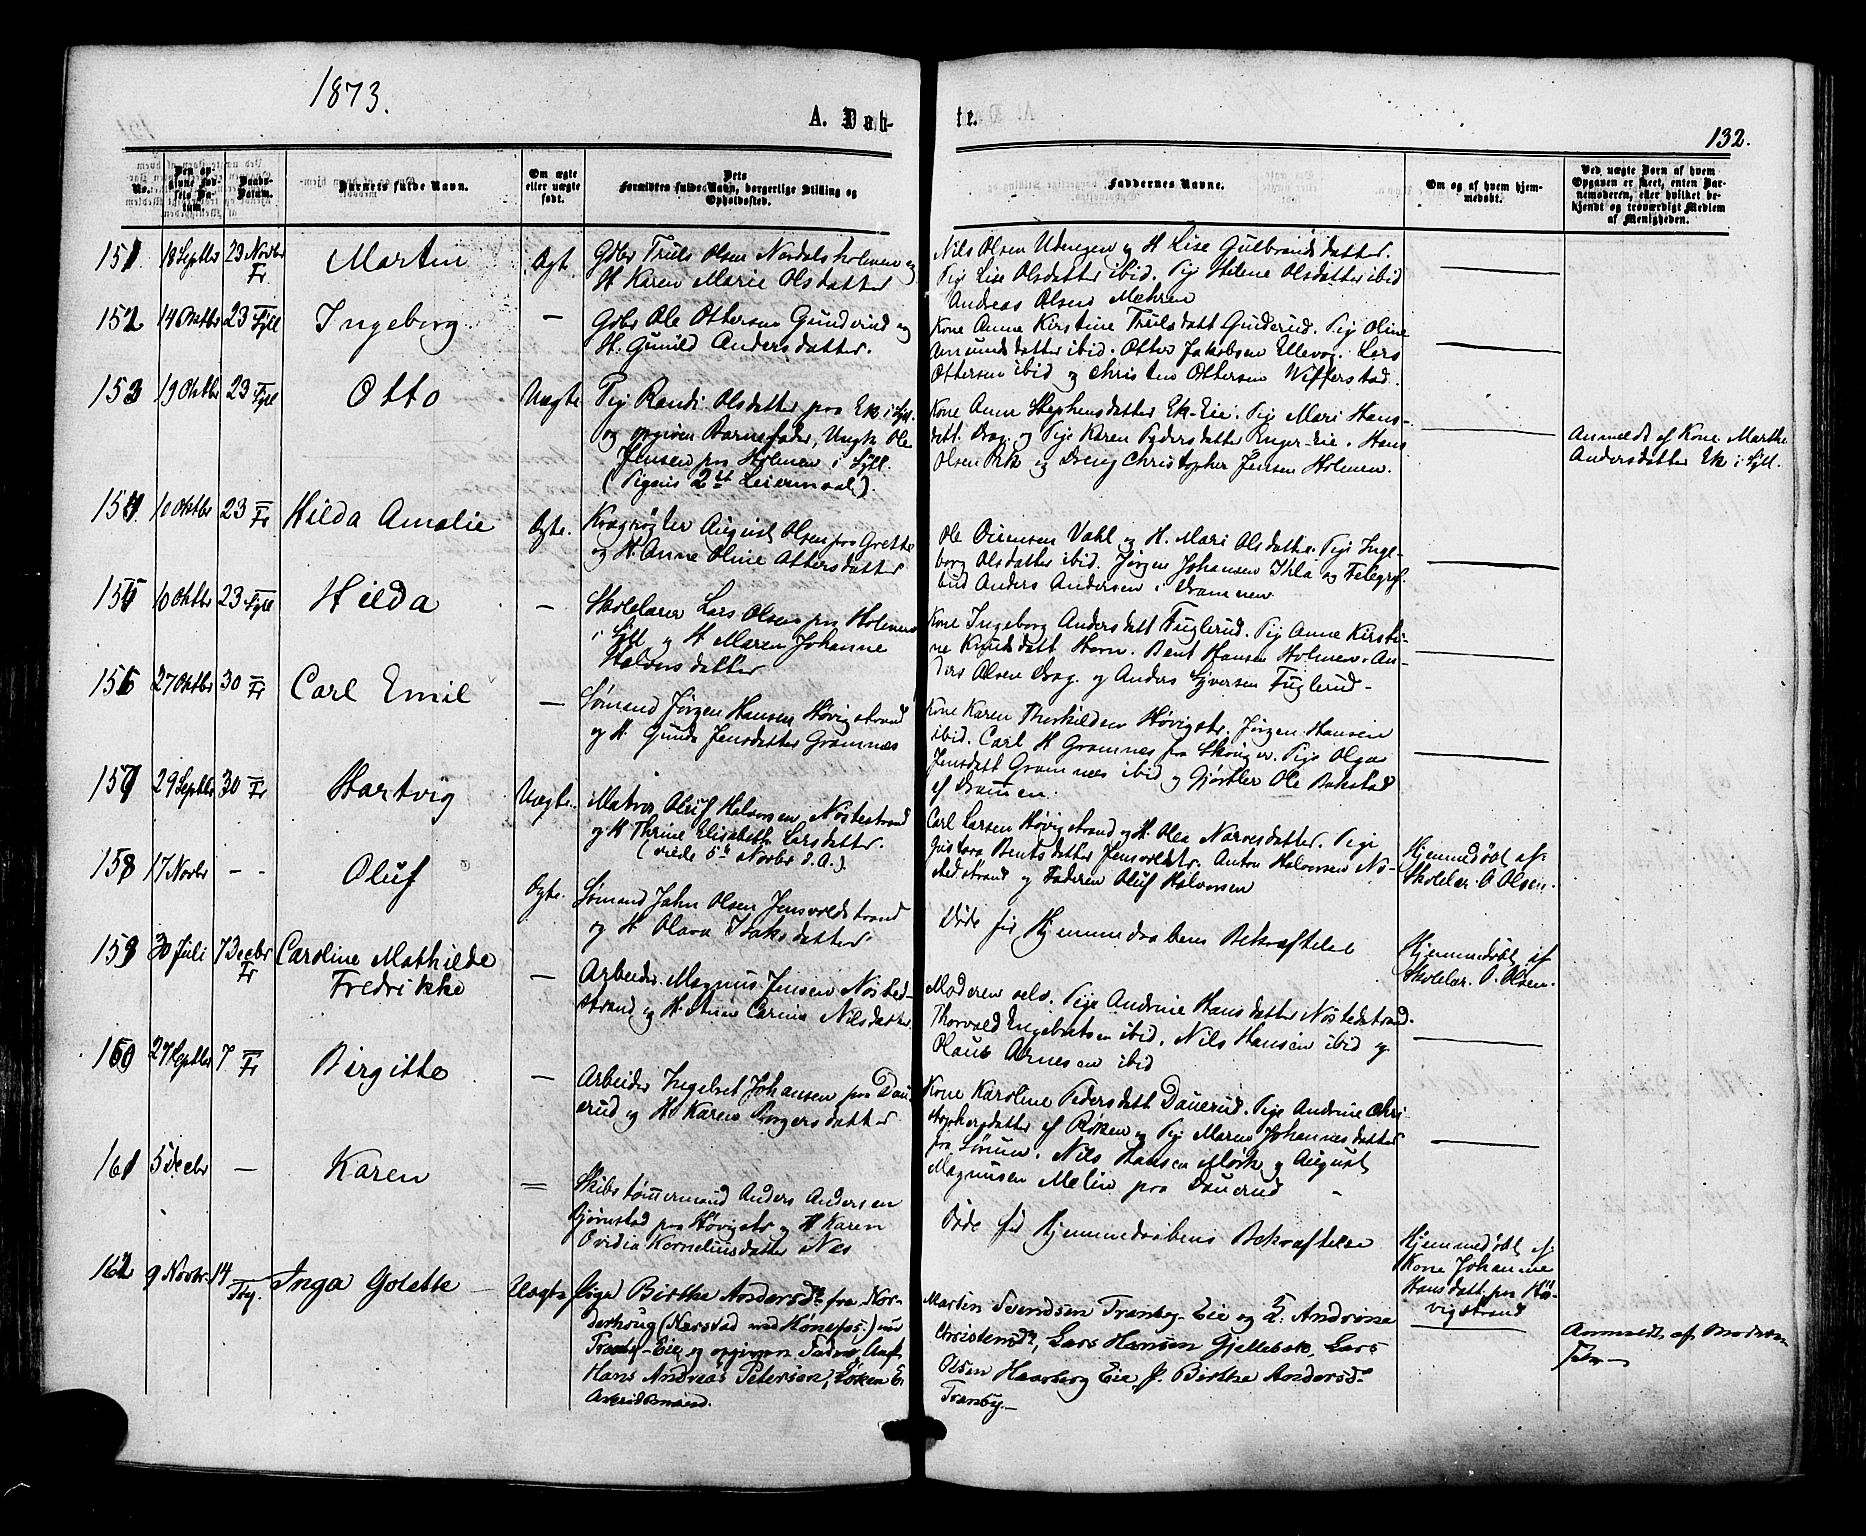 1873.
A. Døb-
te.
132.
No.
Den op-
givne Fød-
sels Da-
tum.
Daabs-
Datum.
Barnets fulde Navn.
Om ægte
eller uægte
født.
Dets
Forældres fulde Navn, borgerlige Stilling og
Opholdssted.
Faddernes Navne.
Om og af hvem hjem-
medøbt.
Ved uægte Børn af hvem
Opgaven er skeet, enten Bar-
nemoderen, eller hvilket be-
kjendt og troværdigt Medlem
af Menigheden.
151. 18 Septbr 23 Novbr Fr. Martin Ægt.
Gdbr Truls Olsen Nordalsholmen og
H Karen Marie Olsdatter
Nils Olsen Udengen og H Lise Gulbrandsdatter.
Pige Lise Olsdatter ibid. Pige Helene Olsdatter ibid
Andreas Olsen Mehren
152 14 Oktbr 23 Sÿll Ingeborg —
Gdbr Ole Ottersen Gunderud og
H. Gunild Andersdatter.
Kone Anne Kirstine Trulsdatt Gunderud. Pige Oline
Amundsdatter ibid. Otter Jakobsen Ellevog. Lars
Ottersen ibid og Christen Ottersen Wefferstad.
153 19 Oktbr 23 Sÿll Otto Uægte
Pige Randi Olsdatter paa Ek i Syll.
og opgiven Barnefader, Ungk Ole
Jensen paa Holmen i Syll.
(Pigens 2det Leiermaal).
Kone Anne Stephensdatter Ek-Eie. Pige Mari Hans-
datt. Brag. og Pige Karen Pedersdatter Enger-Eie. Hans
Olsen Ek og Dreng Christopher Jensen Holmen.
Anmeldt af Kone Marthe
Andersdatter Ek i Syll.
154. 10 Oktbr 23 Fr Hilda Amalie Ægte.
August Olsen paa Grette
og H. Anne Oline Ottersdatter
Ole Vahl og H. Mari Olsdatter. Pige Inge-
borg Olsdatter ibid. Jørgen Johansen og Telegraf
bud Anders Andersen i Drammen
155 10 Oktbr 23 Syll Hilda —
Skolelærer Lars Olsen paa Holmen
i Syll og H Maren Johanne
Halvorsdatter
Kone Ingeborg Andersdatt Fuglerud. Pige Anne Kirsti-
ne Knudsdatt Horn. Bent Hansen Holmen. An-
ders Olsen Brag. og Anders Syversen Fuglerud-
156 27 Oktbr 30 Fr Carl Emil —
Sømand Jørgen Hansen Høvigstrand
og H. Gunda Jensdatter Gramnæs
Kone Karen Thorkildsen Høvigstr. Jørgen Hansen
ibid. Carl H Gramnes fra Skouger. Pige Olga
Jensdatt Gramnæs ibid og Gjørtler Ole Bakstad
af Drammen.
157 29 Septbr 30 Fr Hartvig Uægte.
Matros Oluf Halvorsen Nøstestrand
og H Thrine Elisabeth Larsdatter.
(viede 5te Novbr d. A.).
Carl Larsen Høvigstrand og H. Olea Narvesdatter. Pige
Gustava Bentsdatter Jensvoldstr. Anton Halvorsen Nø-
stedstrand og Faderen Oluf Halvorsen
Hjemmedøbt af
Skolelær. O Olsen.
158 17 Novbr - - Oluf Ægte.
Sømand Jahn Olsen Jensvoldstrand
og H Olava Isaksdatter
Døde før Hjemmedaabens Bekræftelse
Hjemmedøbt af
Skolelær. O. Olsen.
159 30 Juli 7 Decbr Fr Caroline Mathilde
Fredrikke —
Arbeider Magnus Jensen Nøsted-
strand og H. Anne Carine Nilsdatter
Moderen selv. Pige Andrine Hansdatter Nøstedstrand.
Thorvald Engebretsen ibid. Nils Hansen ibid og
Olaus Arnesen ibid
160 27 Septbr 7 Fr Birgitte —
Arbeider Ingebret Johansen paa Dau-
erud og H. Karen Borgersdatter
Kone Karoline Pedersdatt Dauerud. Pige Andrine Chri-
stophersdatter af Røken og Pige Maren Johannesdatter
fra Sørum. Nils Hansen Mørk og August
Magnusen Melin paa Dauerud
161 5 Decbr — Karen =
Skibstømmermand Anders Andersen
Bjørnstad paa Høvigstr og H Karen
Ovidia Korneliusdatter Næs
Døde før Hjemmedaabens Bekræftelse
Hjemmedøbt af
Kone Johanne
Hansdatt paa Hø-
vigstrand
162 9 Novbr. 14 Trby. Inga Golette — Uægte
Pige Birthe Andersdr fra Nor-
derhoug (Narstad ved Hønefos) nu
Tranby-Eie, og opgiven Fader, Unk.
Hans Andreas Petersen,
Arbeidsmand.
Martin Svendsen Tranby-Eie og H. Andrine
Christensdr, Lars Hansen Gjellebek, Lars
Olsen Haarberg Eie, P. Birthe Andersdr
Tranby.—
Anmeldt af Moderen
selv—